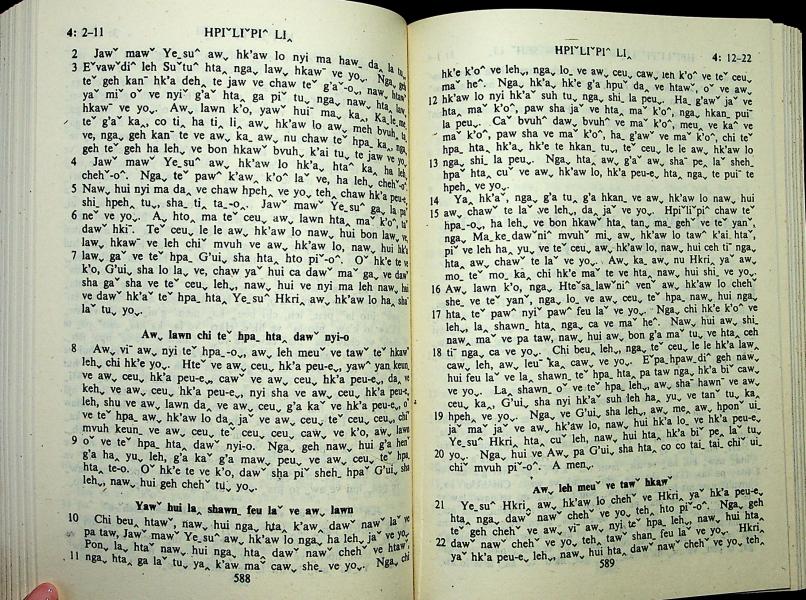 4: 2-11
HPIˇLIˇPI^ LIꞈ
2 Jawˇ mawˇ Ye_su^ awˬ hk'aw lo nyi ma hawˬ daꞈ la tuˬ
3 Eˇvawˇdi^ leh Suˇtuˇ htaꞈ ngaˬ lawˬ hkawˇ ve yoˬ. Ngaˬ geh
teˇ geh kan¯ hk'a dehˬ te jaw ve chawˇ teˇ g'aˇ-oˬ, nawˬ htawˇ
ya^ miˇ oˇ ve nyiˇ g'aˇ htaꞈ ga piˇ tuˬ, ngaˬ nawˬ htaꞈ lawˬ
hkawˇ ve yoˬ. Awˬ lawn k'o, yawˇ hui¯ maꞈ Kaꞈle_me_
teˇ g'aˇ kaꞈ, co tiꞈ ha tiꞈ liꞈ awˬ hk'aw lo awˬ meh bvuh taꞈ
ve, ngaˬ geh kan¯ te ve awˬ kaꞈ awˬ nu chaw teˇ hpaꞈ kaꞈ ngaˬ
geh teˇ geh ga lehˬ ve bon hkawˇ bvuhˬ k'ai tuˬ te jaw ve yoˬ.
4 Jawˇ mawˇ Ye_su^ awˬ hk'aw lo hk'aꞈ hta^ kaꞈ ha lehˬ
chehˇ-o^. Ngaˬ teˇ pawˇ k'awˬ k'o^ laˇ ve, ha lehˬ chehˇ-o^.
5 Nawˬ hui nyi ma daꞈ ve chaw hpehˬ ve yoˬ, tehˬ chaw hk'a peu-eˬ
shiꞈ hpehˬ tuˬ, shaꞈ tiꞈ taꞈ-oˬ. Jawˇ mawˇ Ye_su^ gaꞈ la paˇ
6 neˇ ve yoˬ. Aꞈ hto ma teˇ ceuˬ awˬ lawn htaꞈ maˇ k'oˇ, taˇ
dawˇ hki¯. Teˇ ceuˬ le le awˬ hk'aw lo nawˬ hui bon lawˬ ve,
lawˬ hkawˇ ve leh chiˇ mvuh ve awˬ hk'aw lo, nawˬ hui hk'a
7 lawˬ gaˇ ve teˇ hpaꞈ G'uiˬ sha htaꞈ hto piˇ-o^. Oˇ hk'e te ve
k'o, G'uiˬ sha lo laꞈ ve, chaw yaˇ hui ca dawˇ maˇ gaꞈ ve daw
sha gaˇ sha ve teˇ ceuˬ lehˬ, nawˬ hui ve nyi ma leh nawˬ hui
ve dawˇ hk'aˇ teˇ hpaꞈ htaꞈ Ye_su^ Hkriꞈ awˬ hk'aw lo haꞈ sha
la tuˬ yoˬ.
Awˬ lawn chi teˇ hpaꞈ htaꞈ dawˇ nyi-o
8 Awˬ viˇ awˬ nyi teˇ hpa-oˬ, awˬ leh meuˇ ve tawˇ teˇ hkawˇ
lehˬ chi hk'e yoˬ. Hteˇ ve awˬ ceuˬ hk'a peu-eˬ, yawˇ yan keunˬ
ve awˬ ceuˬ hk'a peu-eˬ, cawˇ ve awˬ ceuˬ hk'a peu-eˬ, daꞈ ve
kehˬ ve awˬ ceuˬ hk'a peu-eˬ, nyi sha ve awˬ ceuˬ hk'a peu-eˬ
leh, shu ve awˬ lawn daꞈ ve awˬ ceuˬ, g'a kaˇ ve hk'a peu-eˬ, oˇ
ve teˇ hpaꞈ awˬ hk'aw lo daꞈ jaˇ ve awˬ ceuˬ teˇ ceuˬ ceuˬ, chiˇ
mvuh keunˬ ve awˬ ceuˬ teˇ ceuˬ ceuˬ cawˬ ve k'o, awˬ lawn
9 oˇ ve teˇ hpaꞈ htaꞈ dawˇ nyi-o. Ngaˬ geh nawˬ hui g'a henˇ
g'a haꞈ yuˬ leh, g'a kaˇ g'a mawˬ peuˬ ve awˬ ceuˬ teˇ hpaꞈ
htaꞈ te-o. Oˇ hk'e te ve k'o, dawˇ sha piˇ shehꞈ hpaˇ G'uiˬ sha
lehˬ, nawˬ hui geh chehˇ tuˬ yoˬ.
Yawˇ hui laꞈ shawnꞈ feu laˇ ve awˬ lawn
10 Chi beuˬ htawˇ, nawˬ hui nga htaꞈ k'awˬ dawˇ nawˇ laˇ ve
pa taw, Jawˇ mawˇ Ye_su^ awˬ hk'aw lo nga ha lehˬ jaˇ ve yoˬ.
Ponˬ laꞈ htaˇ nawˬ hui nga htaꞈ dawˇ nawˇ chehˇ ve htawˇ,
11 nga htaꞈ ga laˇ tuˬ yaꞈ k'aw maˇ cawˬ she_ ve yoˬ. Ngaˬ chi
588
HPIˇLIˇPI^ LIꞈ
4: 12-22
hk'e k'o^ ve lehˬ, ngaˬ lo_ ve awˬ ceuˬ cawˬ leh k'o^ ve teˇ ceuˬ
maˇ he^. Ngaˬ hk'aꞈ hk'e g'a hpuˇ daꞈ ve htawˇ, oˇ ve awˬ
12 hk'aw lo nyi hk'aˇ suh tuˬ ngaˬ shiꞈ la peuˬ. Haꞈ g'awˇ jaˇ ve
htaꞈ maˇ k'o^, paw sha jaˇ ve htaꞈ maˇ k'o^, ngaˬ hkanꞈ pui¯
la peuˬ. Caˇ bvuh^ dawˬ bvuh^ ve maˇ k'o^, meuˬ ve kaˇ ve
maˇ k'o^, paw sha ve maˇ k'o^, haꞈ g'awˇ ve maˇ k'o^, chi teˇ
hpaꞈ htaꞈ hk'aꞈ hk'e te hkanꞈ tuˬ, teˇ ceuˬ le le awˬ hk'aw lo
13 ngaˬ shiꞈ la peuˬ. Ngaˬ htaꞈ awˬ g'aˇ awˬ shaˇ peꞈ laˇ shehꞈ
hpaˇ htaꞈ cuˇ ve awˬ hk'aw lo, hk'a peu-eˬ htaꞈ nga te piˇ ve
hpehˬ ve yoˬ.
14 Yaꞈ hk'aˇ, ngaˬ g'a tuˬ g'a hkan ve awˬ hk'aw lo nawˬ hui
15 awˬ chawˇ te laˇ ve lehˬ, daꞈ jaˇ ve yoˬ. Hpiˇliˇpi^ chaw teˇ
hpa-oˬ, ha lehˬ ve bon hkawˇ htaꞈ tanꞈ maˬ gehˇ ve teˇ yanˇ,
ngaˬ Maꞈkeꞈdawˇni^ mvuhˇ miˬ awˬ hk'aw lo tawˇ k'ai htaˇ,
piˇ ve leh haꞈ yuˬ ve teˇ ceuˬ awˬ hk'aw lo, nawˬ hui ceh tiˇ nga
htaꞈ awˬ chawˇ te laˇ ve yoˬ. Awˬ kaꞈ awˬ nu Hkriꞈ yaˇ awˬ
mo_ teˇ mo_ kaꞈ chi hk'e maˇ te ve htaꞈ nawˬ hui shiꞈ ve yoˬ.
16 Awˬ lawn k'o, nga Hteˇsaꞈlawˇni^ venˇ awˬ hk'aw lo chehˇ
she_ ve teˇ yanˇ, nga lo_ ve awˬ ceuˬ teˇ hpaꞈ nawˬ hui nga
17 htaꞈ teˇ pawˇ nyiˇ pawˇ feu laˇ ve yoˬ. Ngaˬ chi hk'e k'o^ ve
lehˬ, laꞈ shawnꞈ htaꞈ ngaˬ ca ve maˇ he^. Nawˬ hui awˬ shiꞈ
nawˬ maˇ ve pa taw, nawˬ hui awˬ bon g'a maˇ tuˬ ve htaꞈ ceh
18 tiˇ ngaˬ ca ve yoˬ. Chi beuˬ lehˬ, nga teˇ ceuˬ le le hk'a lawˬ
caw leh, awˬ leuˇ kaꞈ cawˬ ve yoˬ. Eˇpaꞈhpawˬdi^ geh nawˬ
hui feu laˇ ve laꞈ shawnꞈ teˇ hpaꞈ htaꞈ pa taw nga hk'a biˇ cawˬ
ve yoˬ. Laꞈ shawnꞈ oˇ ve teˇ hpaꞈ lehˬ, awˬ shaˇ hawnˇ ve awˬ
ceuˬ kaꞈ, G'uiˬ sha nyi hk'aˇ suh leh haꞈ yuˬ ve tanˇ tuˬ kaꞈ
19 hpehˬ ve yoˬ. Ngaˬ ve G'uiˬ sha lehˬ, awˬ meꞈ awˬ hponˇ uiˬ
jaˇ maˇ jaˇ ve awˬ hk'aw lo, nawˬ hui hk'a lo_ ve hk'a peu-eˬ
Ye_su^ Hkriꞈ htaꞈ cuˇ leh, nawˬ hui htaꞈ hk'a biˇ peꞈ laˇ tuˬ
20 yoˬ. Ngaˬ hui ve Awˬ pa G'uiˬ sha htaꞈ co co taiꞈ taiꞈ chiˇ uiˬ
chiˇ mvuh piˇ-o^. A menˬ.
Awˬ leh meuˇ ve tawˇ hkawˇ
21 Ye_su^ Hkriꞈ awˬ hk'aw lo chehˇ ve Hkriꞈ yaˇ hk'a peu-eˬ
htaꞈ ngaˬ dawˇ nawˇ chehˇ ve yoˬ, tehˬ hto piˇ-o^. Ngaˬ geh
teˇ geh chehˇ ve awˬ viˇ awˬ nyi teˇ hpaꞈ lehˬ, nawˬ hui htaꞈ
22 dawˇ nawˇ chehˇ ve yoˬ, tehˬ tawˇ shanˬ feu laˇ ve yoˬ. Hkriꞈ
yaˇ hk'a peu-eˬ lehˬ, nawˬ hui htaꞈ dawˇ nawˇ chehˇ ve yoˬ, tehˬ
589